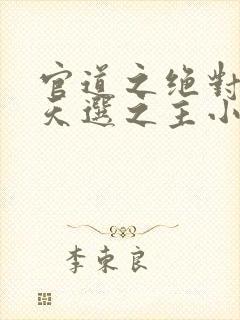 官道之绝對
天選之主小
李東良